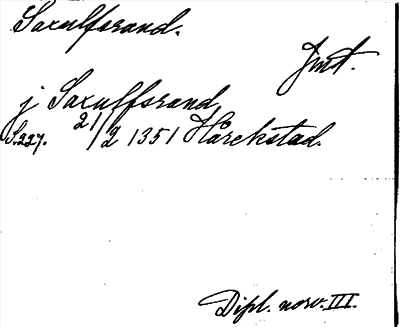 Saxulfsrand.
Jmt.
j Saxulfsrand,
S.227. 21/2 1351 Hårekstad.
Dipl. norv. III.